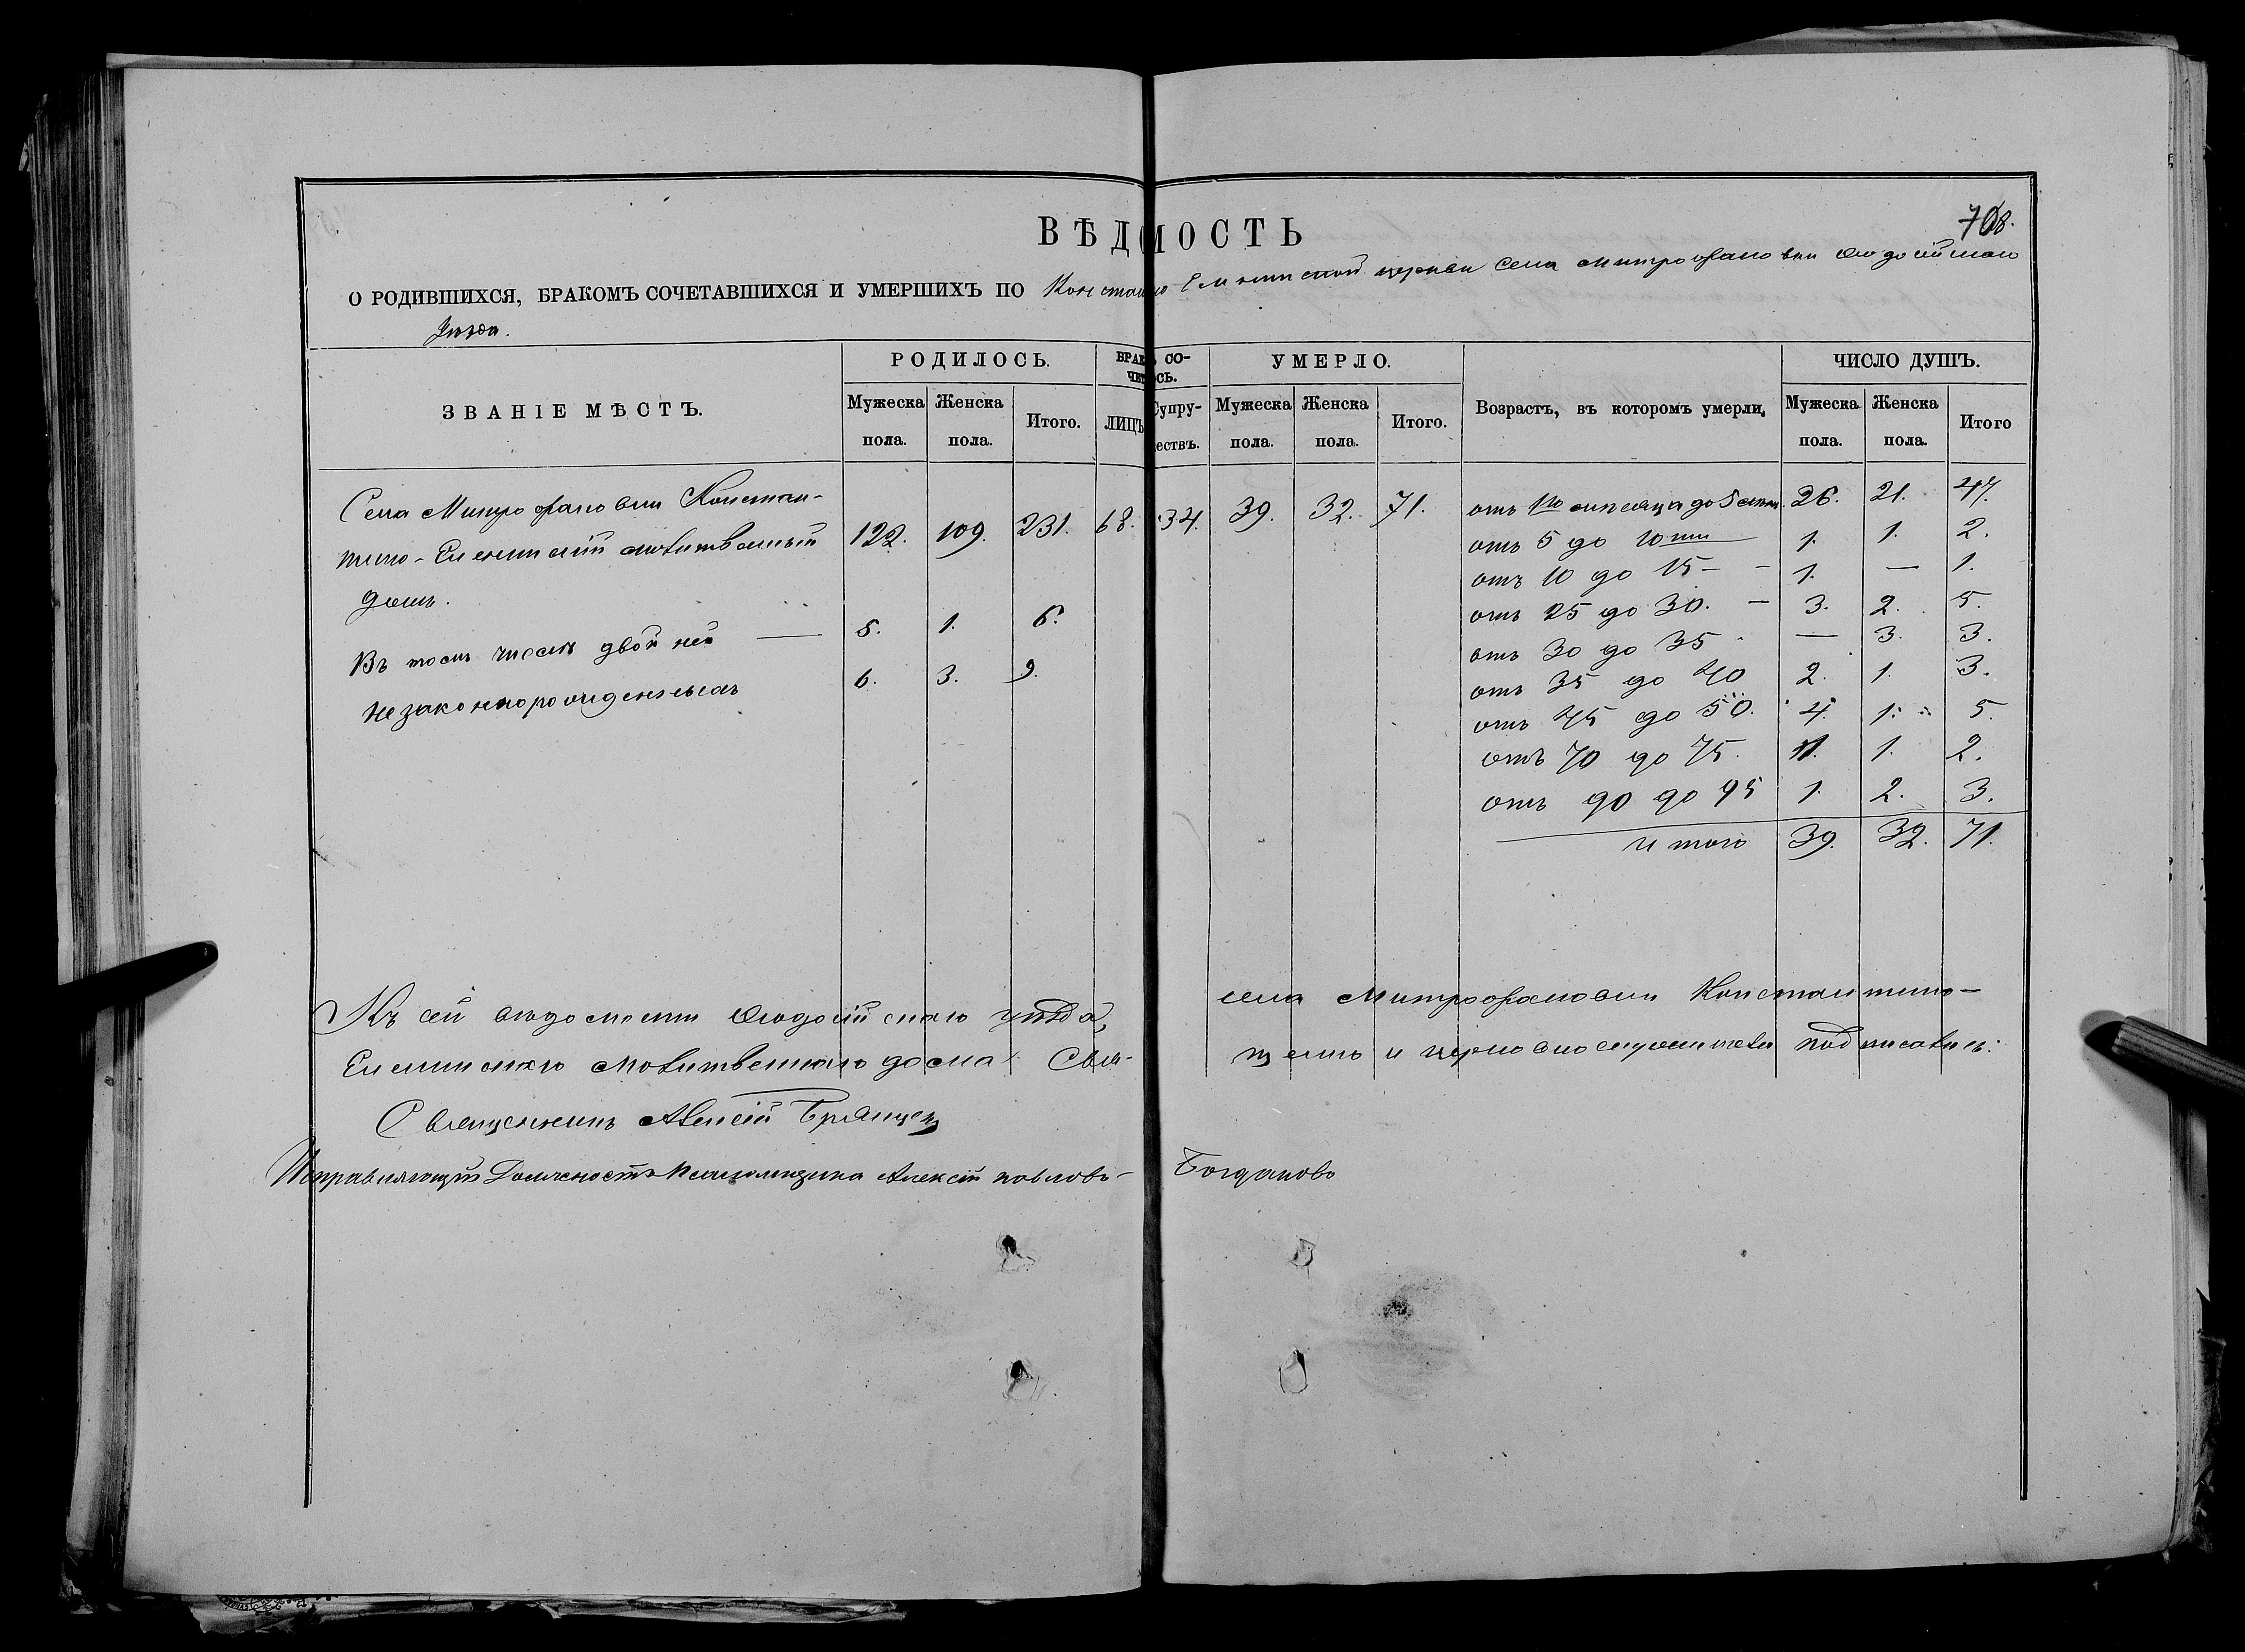 708.
ВѢДОМОСТЬ
О РОДИВШИХСЯ, БРАКОМЪ СОЧЕТАВШИХСЯ И УМЕРШИХЪ ПО Константино Еленинской церкви села Митрофановки Ѳеодосійскаго
уѣзда.
ЗВАНІЕ МѢСТЪ. РОДИЛОСЬ. БРАКЪ СО- УМЕРЛО. Возрастъ, въ которомъ умерли, ЧИСЛО ДУШЪ.
ЧЕТ ОСЬ.
Мужеска Женска Итого. ЛИЦЪ Супру- Мужеска Женска Итого. Мужеска Женска Итого
пола. пола. ествъ. пола. пола. пола. пола.
Села Митрофановки Констан-
тино-Еленинскій молитвенный 122. 109. 231. 68. 34. 39. 32. 71. отъ 1го мѣсяца до 5 лѣтъ 26. 21. 47.
домъ. отъ 5 до 10ти 1. 1. 2.
отъ 10 до 15 – – 1. — 1.
Въ томъ числѣ двойней — 5. 1. 6. отъ 25 до 30. – 3. 2. 5.
отъ 30 до 35 — 3. 3.
незаконнорожденныхъ 6. 3. 9. отъ 35 до 40 2. 1. 3.
отъ 45 до 50. 4. 1. 5.
отъ 70 до 75. 1. 1. 2.
отъ 90 до 95 1. 2. 3.
итого 39. 32. 71.
Къ сей вѣдомости Ѳеодосійскаго уѣзда, села Митрофановки Константино-
Еленинскаго молитвеннаго дома Свя- щенно и церковнослужители подписались:
Священникъ Алексій Брянцевъ
Исправляющій Должность Псаломщика Алексій Павловъ- Богдановъ